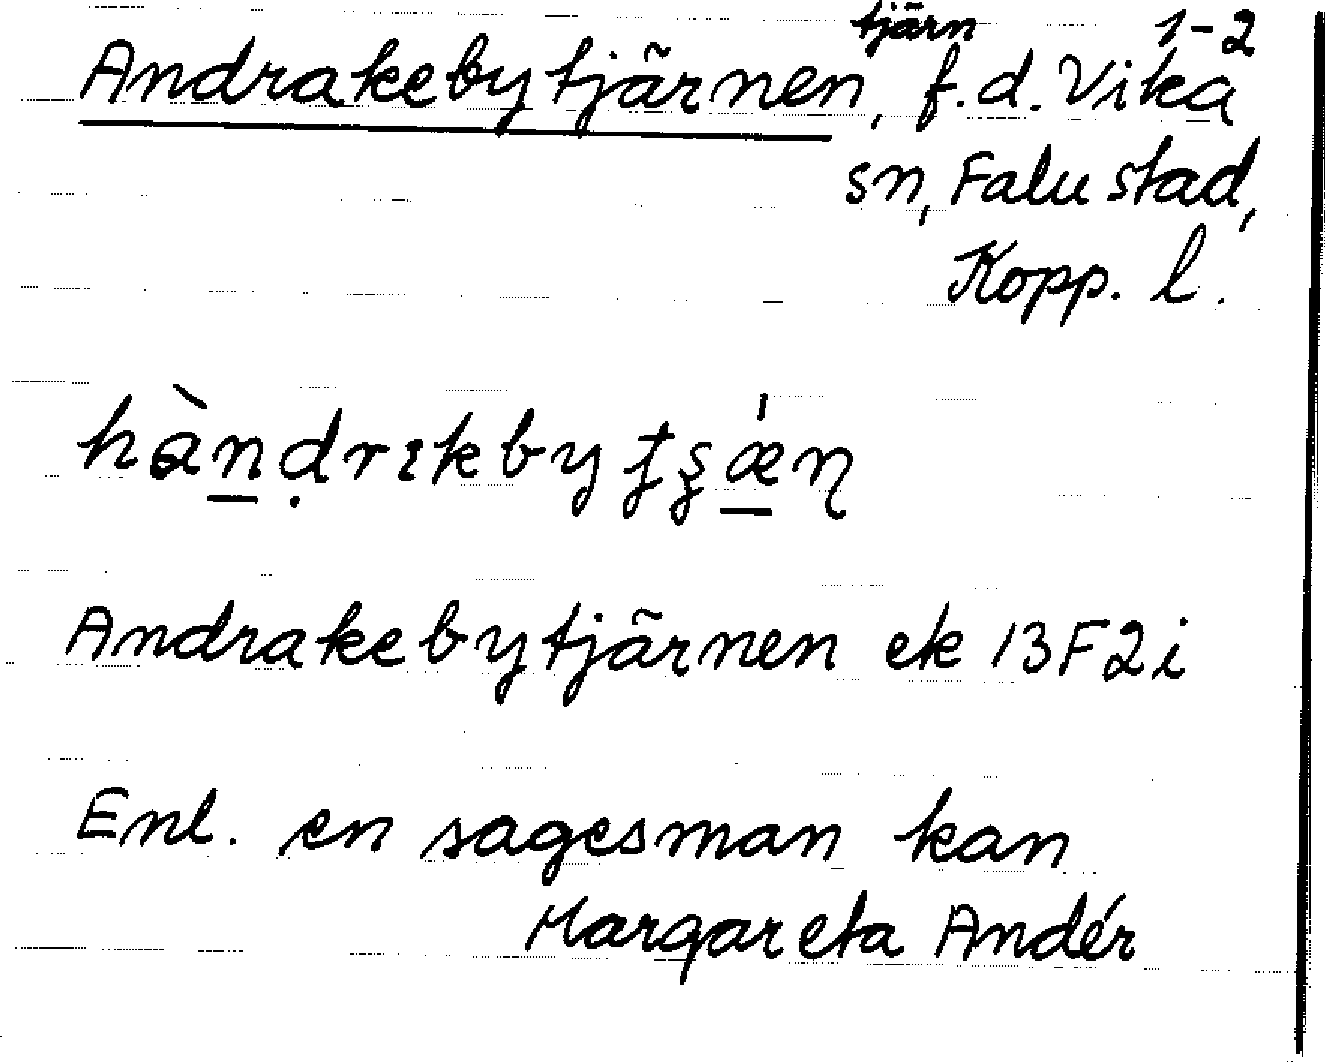 tjärn 1-2
Andrakebytjärnen, f.d. Vika
sn, Falu stad,
Kopp. l.
hàn̲ḍrɩkbyʈʂǽ̲ɳ
Andrakebytjärnen ek 13F2i
Enl. en sagesman kan
Margareta Andér